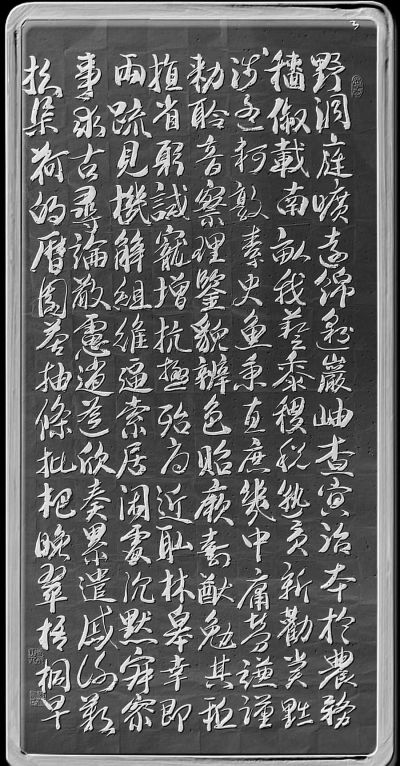 野洞庭曠遠綿邈巖岫杳冥治本於農務
穡俶載南畝我藝黍稷稅熟貢新勸賞黜
陟孟軻敦素史魚秉直庶幾中庸勞謙謹
勅聆音察理鑒貌辨色貽厥嘉猷勉其祗
植省躬誡寵增抗極殆辱近耻林皋幸即
兩疏見機解組誰逼索居閑處沉默寂寥
事求古尋論散慮逍遙欣奏累遣慼謝歡
招渠荷的曆園莽抽條枇杷晚翠梧桐早